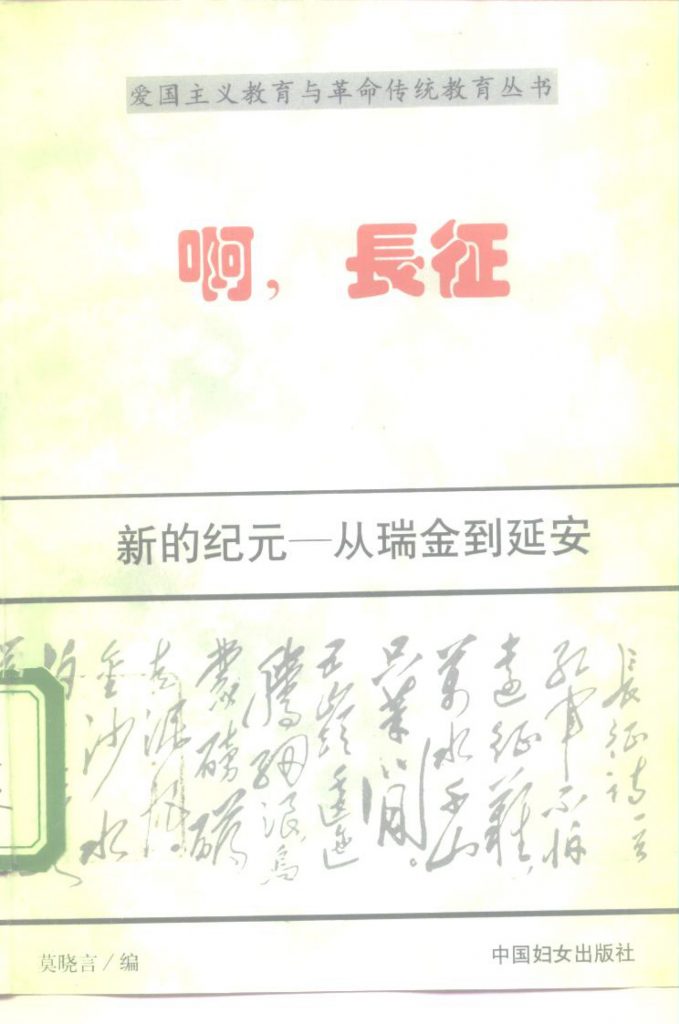 爱国主义教育与革命传统教育丛书
啊，長征
新的纪元—从瑞金到延安
長征詩一首
红军不怕
遠征難
萬水千山
只等闲。
五嶺逶迤
腾细浪烏
蒙磅礴
走泥丸
金沙水
莫晓言/编
中国妇女出版社